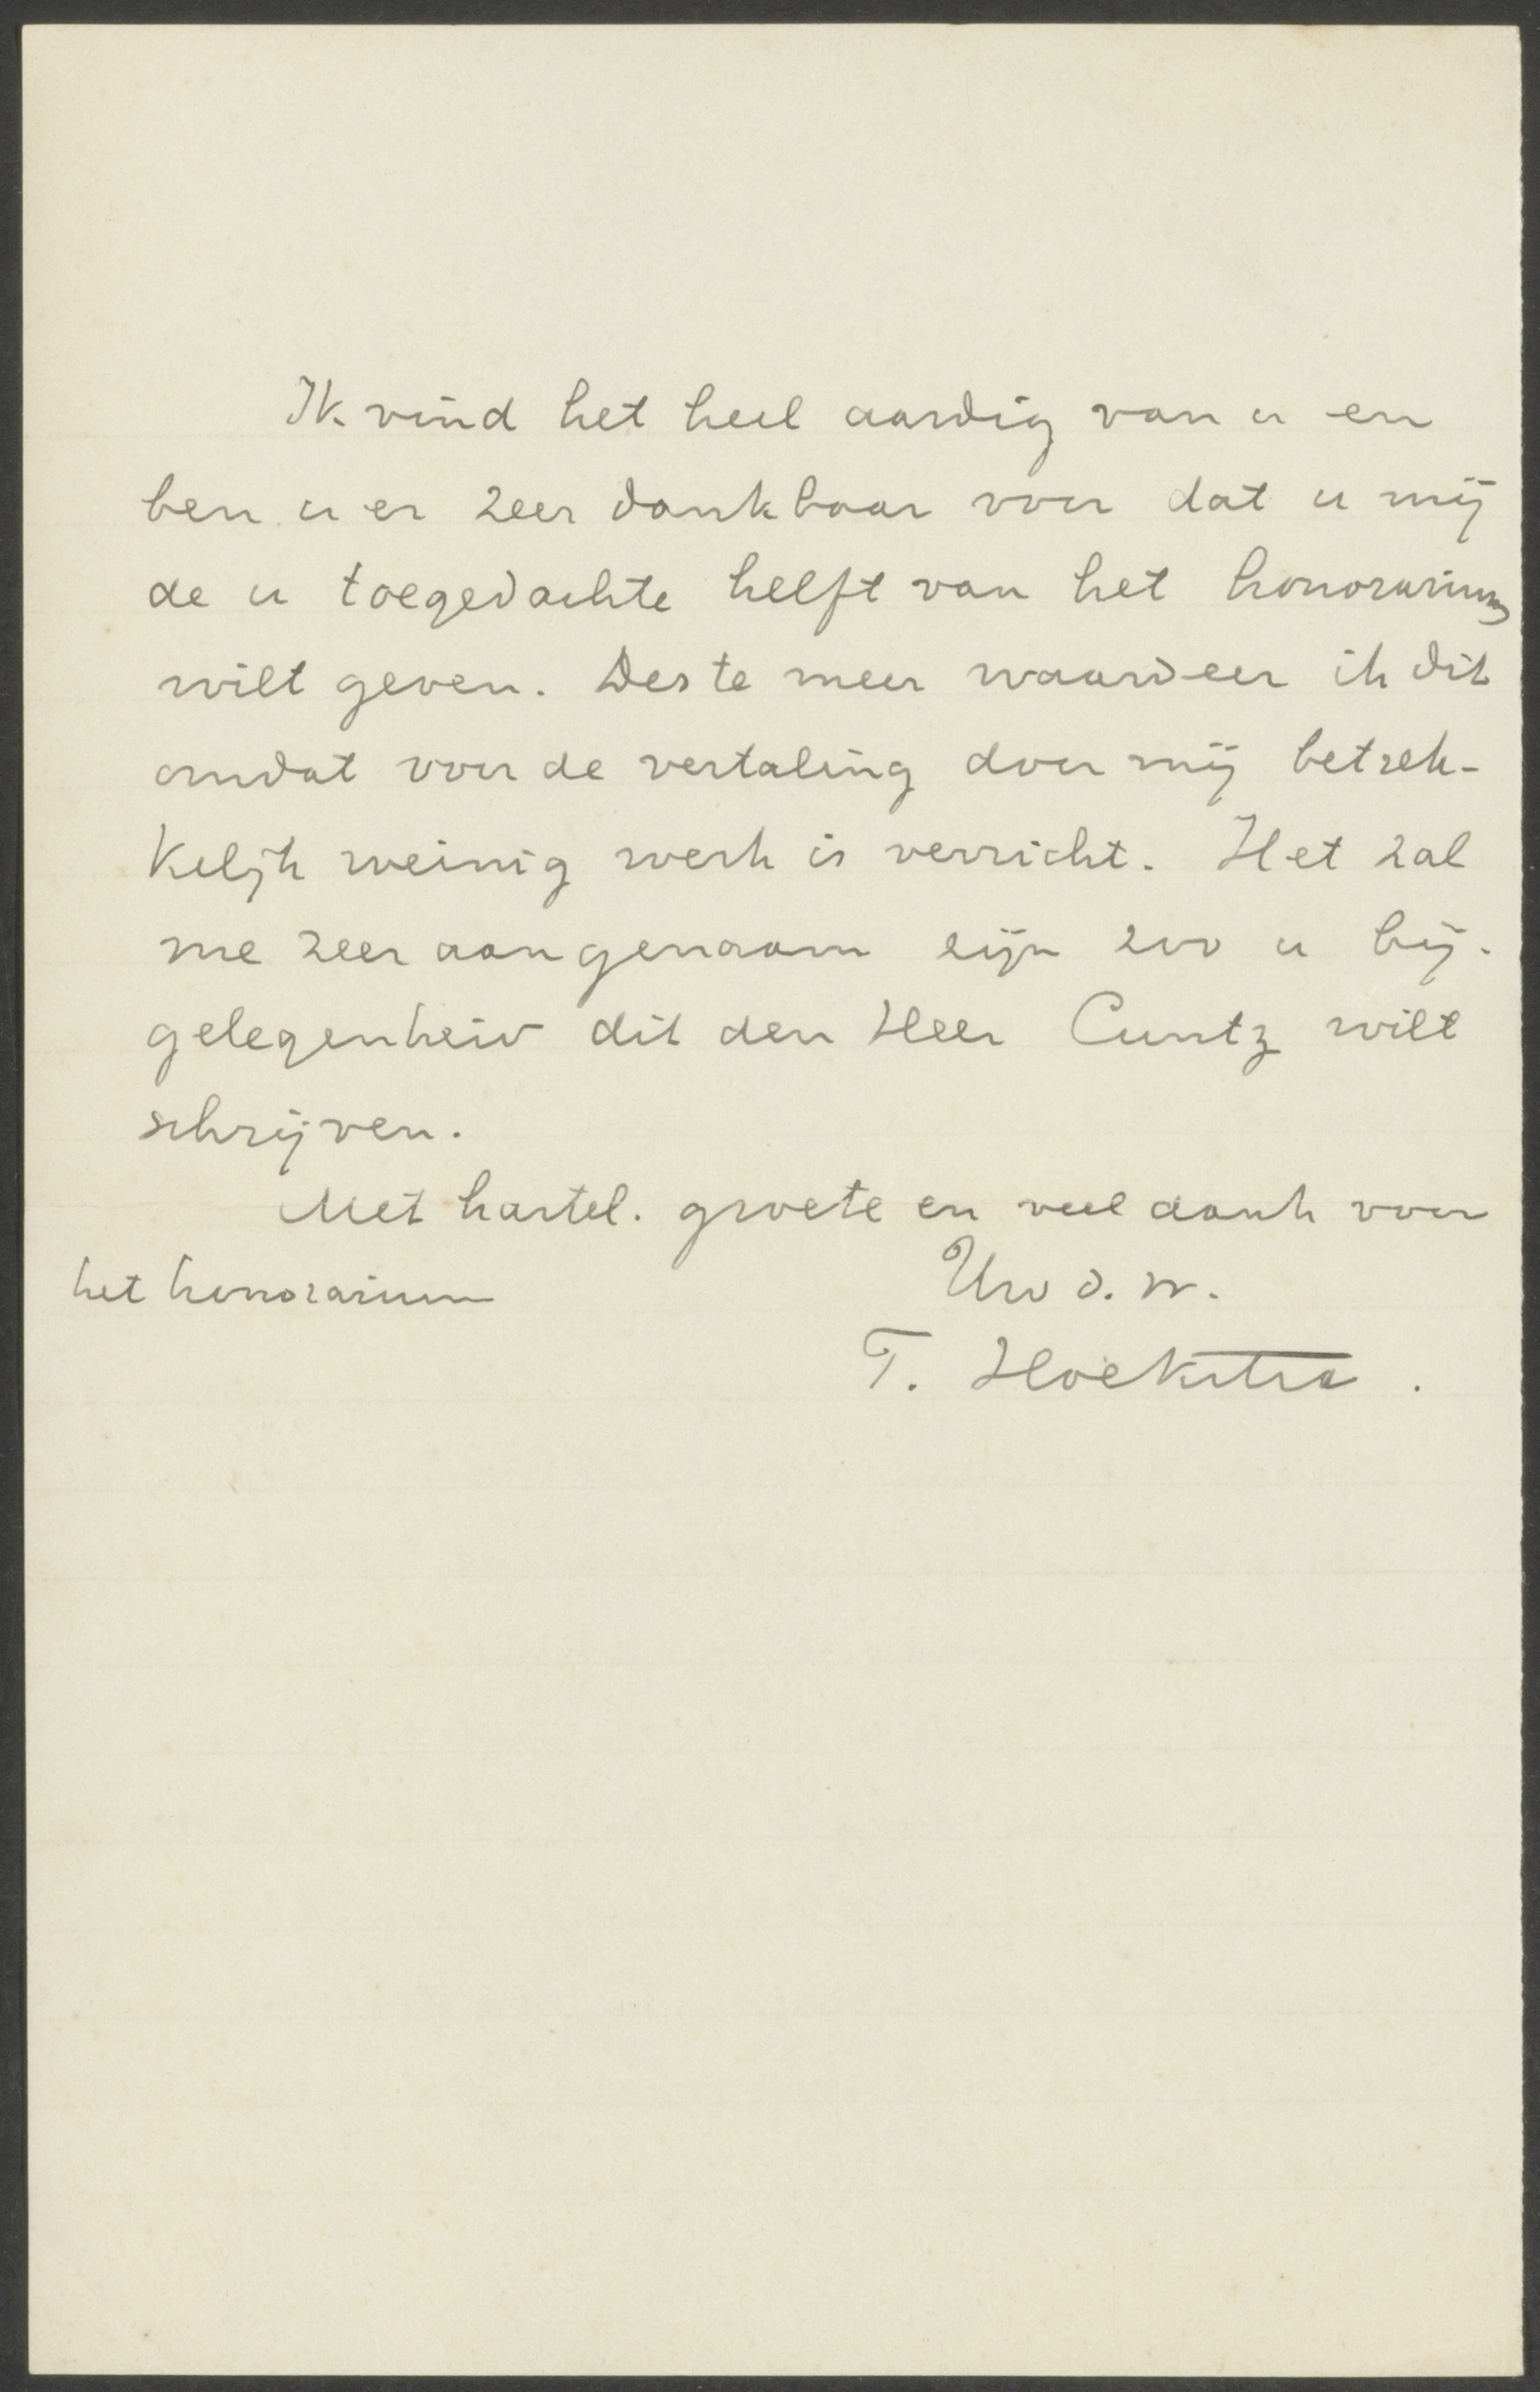 Ik vind het heel aardig van u en
ben u er zeer dankbaar voor dat u mij
de u toegedachte helft van het honorarium
wilt geven. Des te meer waardeer ik dit
omdat voor de vertaling door mij betrek-
kelijk weinig werk is verricht. Het zal
me zeer aangenaam zijn zoo u bij
gelegenheid dit den Heer Cuntz wilt
schrijven.
Met hartel. groete en veel dank voor
het honorarium
Uw d. w.
T. Hoekstra.